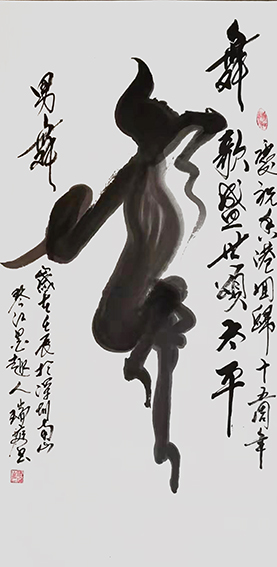 舞
歌盛世頌太平
慶祝香港回歸十五周年
男舞
歲在壬辰於深圳南山
墨趣人瑞